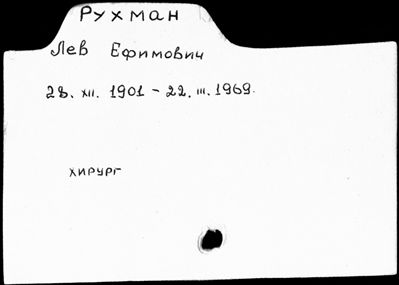 Рухман
Лев Ефимович
28. XII. 1901 - 22. III. 1969.
хирург